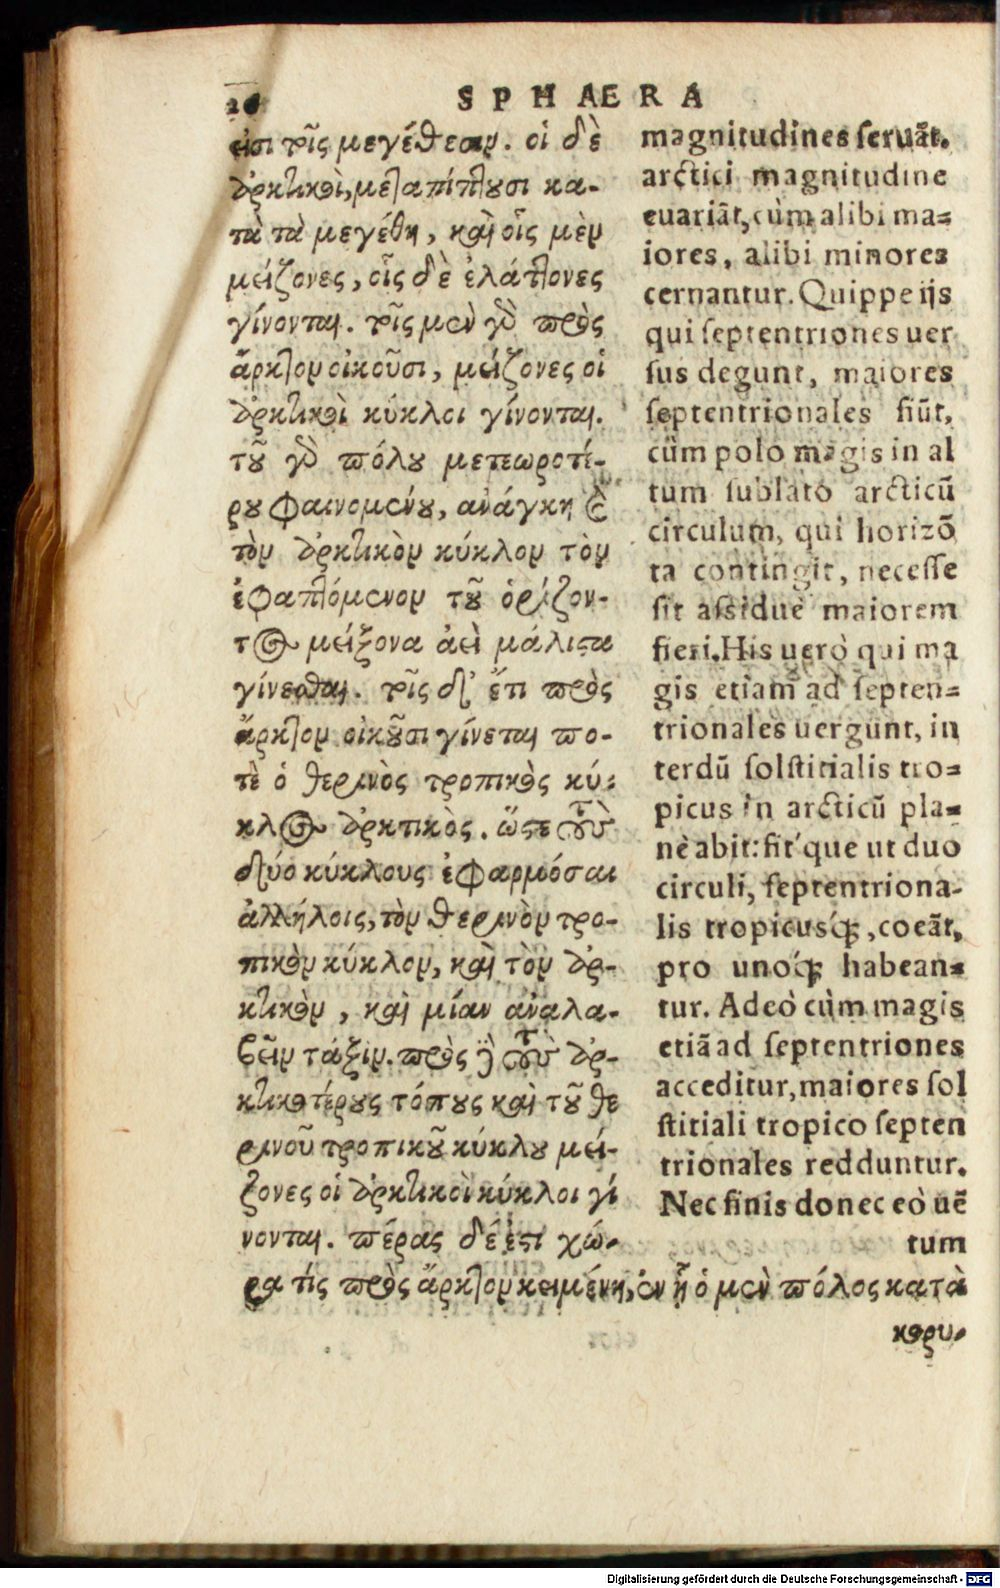 SPHAERA
εἰσι τοῖς μεγέθεσιν. οἱ δὲ
ἀρκτικοὶ, μεταπίπτουσι κα-
τὰ τὰ μεγέθη, καὶ οἷς μὲν
μείζονες, οἷς δὲ ἐλάττονες
γίνονται. τοῖς μὲν γὰρ πρὸς
ἄρκτον οἰκοῦσι, μείζονες οἱ
ἀρκτικοὶ κύκλοι γίνονται.
τοῦ γὰρ πόλου μετεωροτέ-
ρου φαινομένου, ανάγκη ἐ
τὸν ἀρκτικὸν κύκλον τὸν
ἐφαπτόμενον τοῦ ὁρίζον-
τος μείξονα ἀεὶ μάλιστα
γίνεσθαι. τοῖς δ' ἔτι πρὸς
ἄρκτον οἰκοῦσι γίνεται πο-
τὲ ὁ θερινὸς τροπικὸς κύ-
κλος ἀρκτικὸς. ὥστε τοὺς
δύο κύκλους ἐφαρμόσαι
ἀλλήλοις, τὸν θερινὸν τρο-
πικὸν κύκλον, καὶ τὸν ἀρ-
κτικὸν, καὶ μίαν ἀναλα-
βεῖν τάξιν. πρὸς ἢ τοὺς ἀρ-
κτικοτέρους τόπους καὶ τοῦ θε
ρινοῦ τροπικοῦ κύκλου μεί-
ζονες οἱ ἀρκτικοὶ κύκλοι γί
νονται. πέρας δέ ἐστι χώ-
ρα τίς πρὸς ἄρκτον κειμένη, ἐν ᾗ ὁ μὲν πόλος κατὰ
κορυ-
magnitudines seruãt.
arctici magnitudine
euariãt, cùm alibi ma-
iores, alibi minores
cernantur. Quippe ijs
qui septentriones uer
sus degunt, maiores
septentrionales fiũt,
cùm polo magis in al
tum sublato arcticũ
circulum, qui horizõ
ta contingit, necesse
sit assiduè maiorem
fieri. His uerò qui ma
gis etiam ad septen-
trionales uergunt, in
terdũ solstitialis tro-
picus in arcticũ pla-
nè abit: fit́que ut duo
circuli, septentriona-
lis tropicusq́;, coeãt,
pro unoq́; habean-
tur. Adeò cùm magis
etiã ad septentriones
acceditur, maiores sol
stitiali tropico septen
trionales redduntur.
Nec finis donec eò uẽ
tum
Digitalisierung gefördert durch die Deutsche Forschungsgemeinschaft - DFG